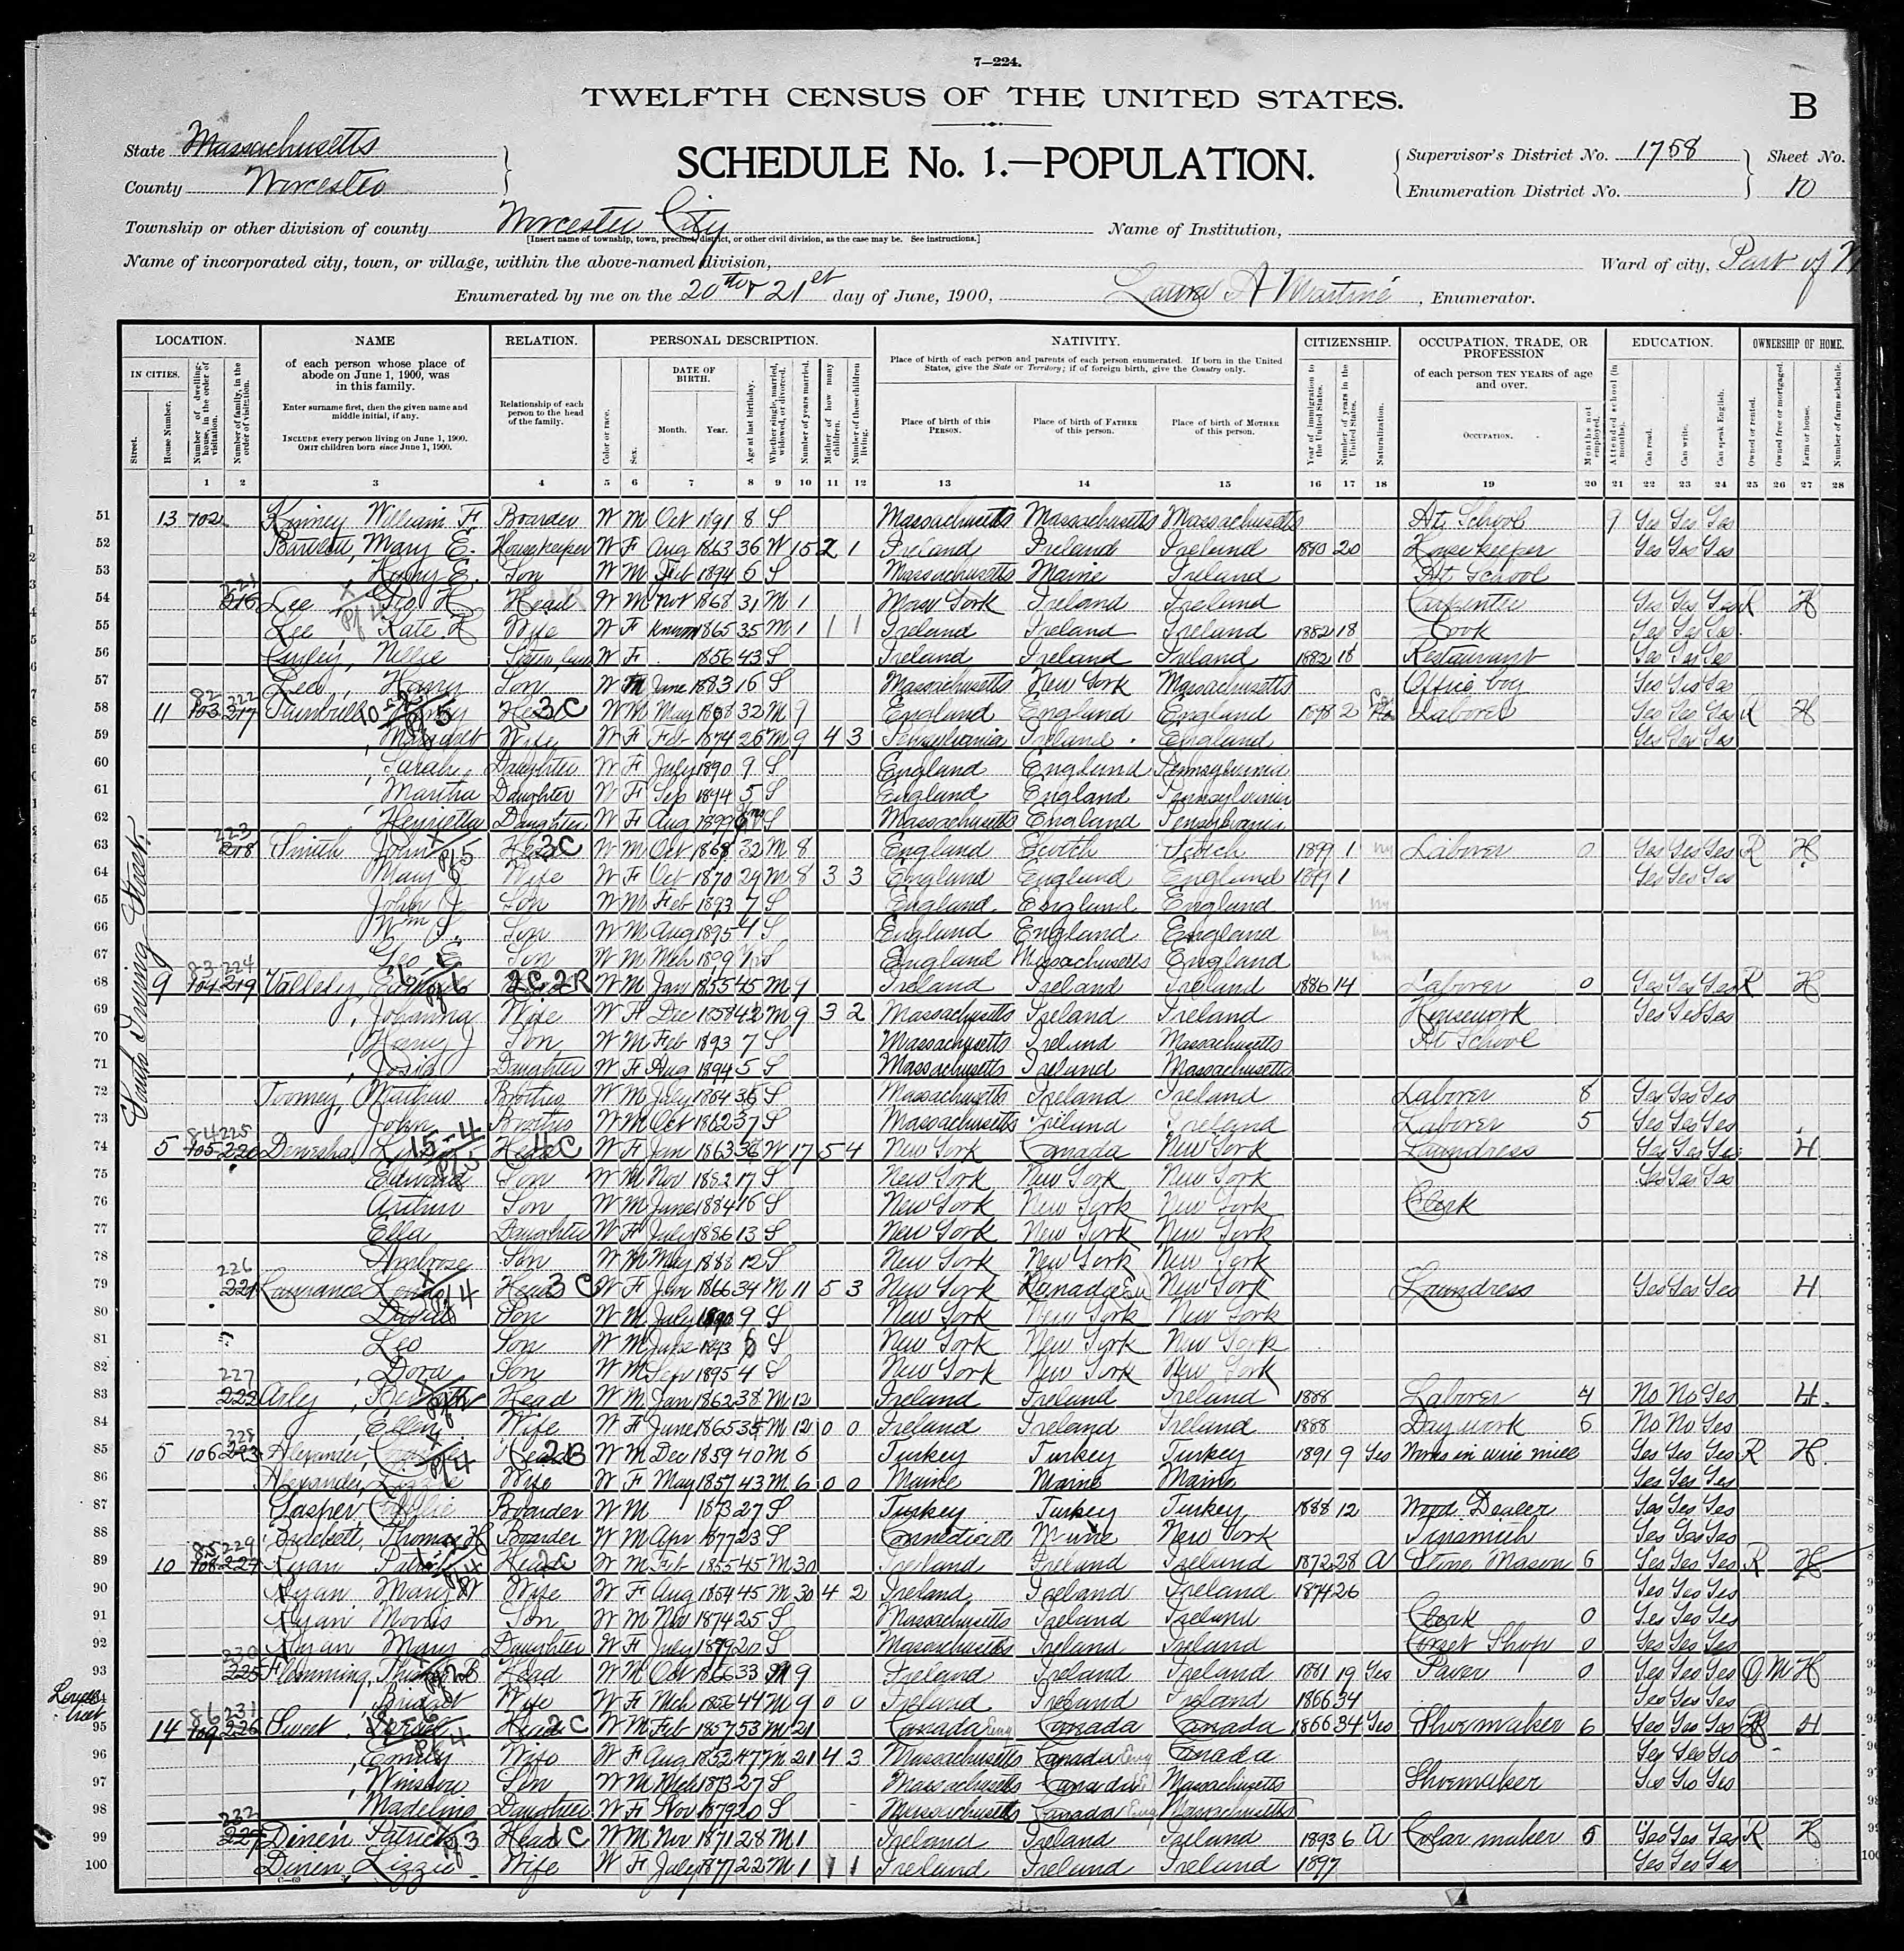 7—224.
TWELFTH CENSUS OF THE UNITED STATES.
B
State Massachusetts
County Worcester
SCHEDULE No. 1.—POPULATION.
Supervisor's District No. 1758
Enumeration District No.
Sheet No. 10
Township or other division of county Worcester City
[Insert name of township, town, precinct, district, or other civil division, as the case may be. See instructions.]
Name of Institution,
Name of incorporated city, town, or village, within the above-named division,
Ward of city, Part of
Enumerated by me on the 20th & 21st day of June, 1900, Laura A Martine, Enumerator.
LOCATION. NAME RELATION. PERSONAL DESCRIPTION. NATIVITY. CITIZENSHIP. OCCUPATION, TRADE, OR PROFESSION EDUCATION. OWNERSHIP OF HOME.
IN CITIES.
Street. House Number. Number of dwelling-house, in the order of visitation. Number of family, in the order of visitation.
of each person whose place of abode on June 1, 1900, was in this family.
Enter surname first, then the given name and middle initial, if any.
INCLUDE every person living on June 1, 1900. OMIT children born since June 1, 1900.
Relationship of each person to the head of the family.
Color or race. Sex. DATE OF BIRTH. Month. Year. Age at last birthday. Whether single, married, widowed, or divorced. Number of years married. Mother of how many children. Number of these children living.
Place of birth of each person and parents of each person enumerated. If born in the United States, give the State or Territory; if of foreign birth, give the Country only.
Place of birth of this PERSON. Place of birth of FATHER of this person. Place of birth of MOTHER of this person.
Year of immigration to the United States. Number of years in the United States. Naturalization.
of each person TEN YEARS of age and over.
OCCUPATION. Months not employed.
Attended school (in months). Can read. Can write. Can speak English.
Owned or rented. Owned free or mortgaged. Farm or house. Number of farm schedule.
1 2 3 4 5 6 7 8 9 10 11 12 13 14 15 16 17 18 19 20 21 22 23 24 25 26 27 28
South Irving Street.
51 13 102 Kinney William F. Boarder W M Oct 1891 8 S Massachusetts Massachusetts Massachusetts At School 9 Yes Yes Yes
52 Mary E. Housekeeper W F Aug 1863 36 W 15 2 1 Ireland Ireland Ireland 1880 20 Housekeeper Yes Yes Yes
53 Harry E. Son W M Feb 1894 6 S Massachusetts Maine Ireland At School
54 221 216 Lee Geo H Head W M Nov 1868 31 M 1 New York Ireland Ireland Carpenter Yes Yes Yes R H
55 Lee Kate H Wife W F 1865 35 M 1 1 1 Ireland Ireland Ireland 1882 18 Cook Yes Yes Yes
56 Nellie W F 1856 43 S Ireland Ireland Ireland 1882 18 Restaurant Yes Yes Yes
57 Lee, Harry Son W M June 1883 16 S Massachusetts New York Massachusetts Office boy Yes Yes Yes
58 11 82 103 222 217 Head 3C W M May 1868 32 M 9 England England England 1898 2 Laborer Yes Yes Yes R H
59 Margaret Wife W F Feb 1874 26 M 9 4 3 Pennsylvania Ireland England Yes Yes Yes
60 Sarah Daughter W F July 1890 9 S England England Pennsylvania
61 Martha Daughter W F Sep 1894 5 S England England Pennsylvania
62 Henrietta Daughter W F Aug 1899 S Massachusetts England Pennsylvania
63 223 218 Smith John Head 3C W M Oct 1868 32 M 8 England Scotch Scotch 1899 1 Laborer 0 Yes Yes Yes R H
64 Mary Wife W F Oct 1870 29 M 8 3 3 England England England 1899 1 Yes Yes Yes
65 John J Son W M Feb 1893 7 S England England England
66 Wm S. Son W M Aug 1895 4 S England England England
67 Geo E Son W M Mch 1899 S England Massachusetts England
68 9 83 104 224 219 Vallely, 2C 2R W M Jan 1855 45 M 9 Ireland Ireland Ireland 1886 14 Laborer 0 Yes Yes Yes R H
69 Johanna Wife W F Dec 1858 42 M 9 3 2 Massachusetts Ireland Ireland Housework Yes Yes Yes
70 Harry J Son W M Feb 1893 7 S Massachusetts Ireland Massachusetts At School
71 Josie Daughter W F Aug 1894 5 S Massachusetts Ireland Massachusetts
72 Toomey, Brother W M July 1864 36 S Massachusetts Ireland Ireland Laborer 8 Yes Yes Yes
73 John Brother W M Oct 1862 37 S Massachusetts Ireland Ireland Laborer 5 Yes Yes Yes
74 5 84 105 225 220 Head 4C W F Jan 1863 36 W 17 5 4 New York Canada New York Laundress Yes Yes Yes H
75 Edward Son W M Nov 1882 17 S New York New York New York Yes Yes Yes
76 Arthur Son W M June 1884 16 S New York New York New York Clerk
77 Ella Daughter W F July 1886 13 S New York New York New York
78 Ambrose Son W M May 1888 12 S New York New York New York
79 226 221 Lawrance Head 3C W F Jan 1866 34 M 11 5 3 New York Canada En New York Laundress Yes Yes Yes H
80 Son W M July 1890 9 S New York New York New York
81 Leo Son W M June 1893 6 S New York New York New York
82 Dora Son W M Sep 1895 4 S New York New York New York
83 227 222 Arly, Head W M Jan 1862 38 M 12 Ireland Ireland Ireland 1888 Laborer 4 No No Yes H.
84 Ellen Wife W F June 1865 35 M 12 0 0 Ireland Ireland Ireland 1888 Day work 6 No No Yes
85 5 106 228 223 Alexander, Head 2B W M Dec 1859 40 M 6 Turkey Turkey Turkey 1891 9 Yes Works in wire mill Yes Yes Yes R H.
86 Alexander, Lizzie Wife W F May 1857 43 M 6 0 0 Maine Maine Maine Yes Yes Yes
87 Gasper, Boarder W M 1873 27 S Turkey Turkey Turkey 1888 12 Wood Dealer Yes Yes Yes
88 Thomas H Boarder W M Apr 1877 23 S Connecticut Maine New York Tinsmith Yes Yes Yes
89 10 85 108 229 224 Ryan Patrick Head 2C W M Feb 1855 45 M 30 Ireland Ireland Ireland 1872 28 A Stone Mason 6 Yes Yes Yes R H
90 Ryan Mary W Wife W F Aug 1854 45 M 30 4 2 Ireland Ireland Ireland 1874 26 Yes Yes Yes
91 Ryan Morris Son W M Nov 1874 25 S Massachusetts Ireland Ireland Clerk 0 Yes Yes Yes
92 Ryan Mary Daughter W F July 1879 20 S Massachusetts Ireland Ireland Corset Shop 0 Yes Yes Yes
93 230 225 Flemming, Head W M Oct 1866 33 M 9 Ireland Ireland Ireland 1881 19 Yes Paver 0 Yes Yes Yes O M H
94 Bridget Wife W F Mch 1856 44 M 9 0 0 Ireland Ireland Ireland 1866 34 Yes Yes Yes
95 14 86 109 231 226 Sweet, Head 2C W M Feb 1857 53 M 21 Canada Eng Canada Canada 1866 34 Yes Shoemaker 6 Yes Yes Yes R H
96 Emily Wife W F Aug 1852 47 M 21 4 3 Massachusetts Canada Eng Canada Yes Yes Yes
97 Winslow Son W M Mch 1873 27 S Massachusetts Canada Massachusetts Shoemaker Yes Yes Yes
98 Madeline Daughter W F Nov 1879 20 S Massachusetts Canada Eng Massachusetts
99 232 227 Dinen Patrick Head 1C W M Nov 1871 28 M 1 Ireland Ireland Ireland 1893 6 A Colar maker 5 Yes Yes Yes R H
100 Dinen, Lizzie Wife W F July 1877 22 M 1 1 1 Ireland Ireland Ireland 1897 Yes Yes Yes